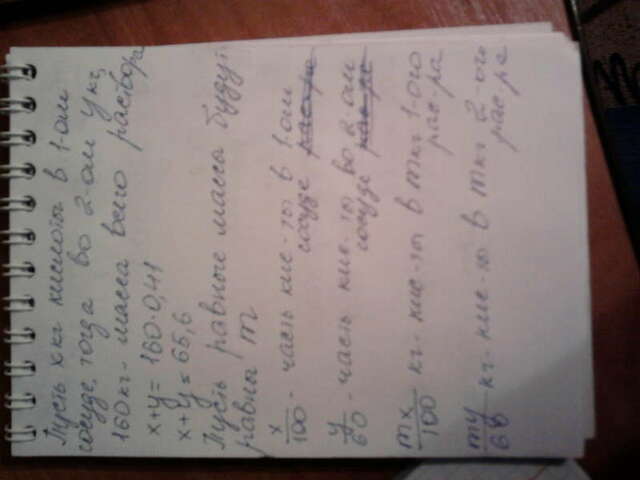 Пусть x кг кислоты в 1-ом
сосуде, тогда во 2-ом y кг,
160 кг - масса всего раствора
x+y = 160·0,41
x+y = 65,6
Пусть равные масса будут
равны m
x/100 - часть кис-ты в 1.ом
сосуде раст-ра
y/60 - часть кис-ты во 2 ом
сосуде раст-ре
mx/100 кг- кис-ты в m кг 1-ого
рас-ра
my/60 кг- кис-ты в m кг 2-ого
рас-ра